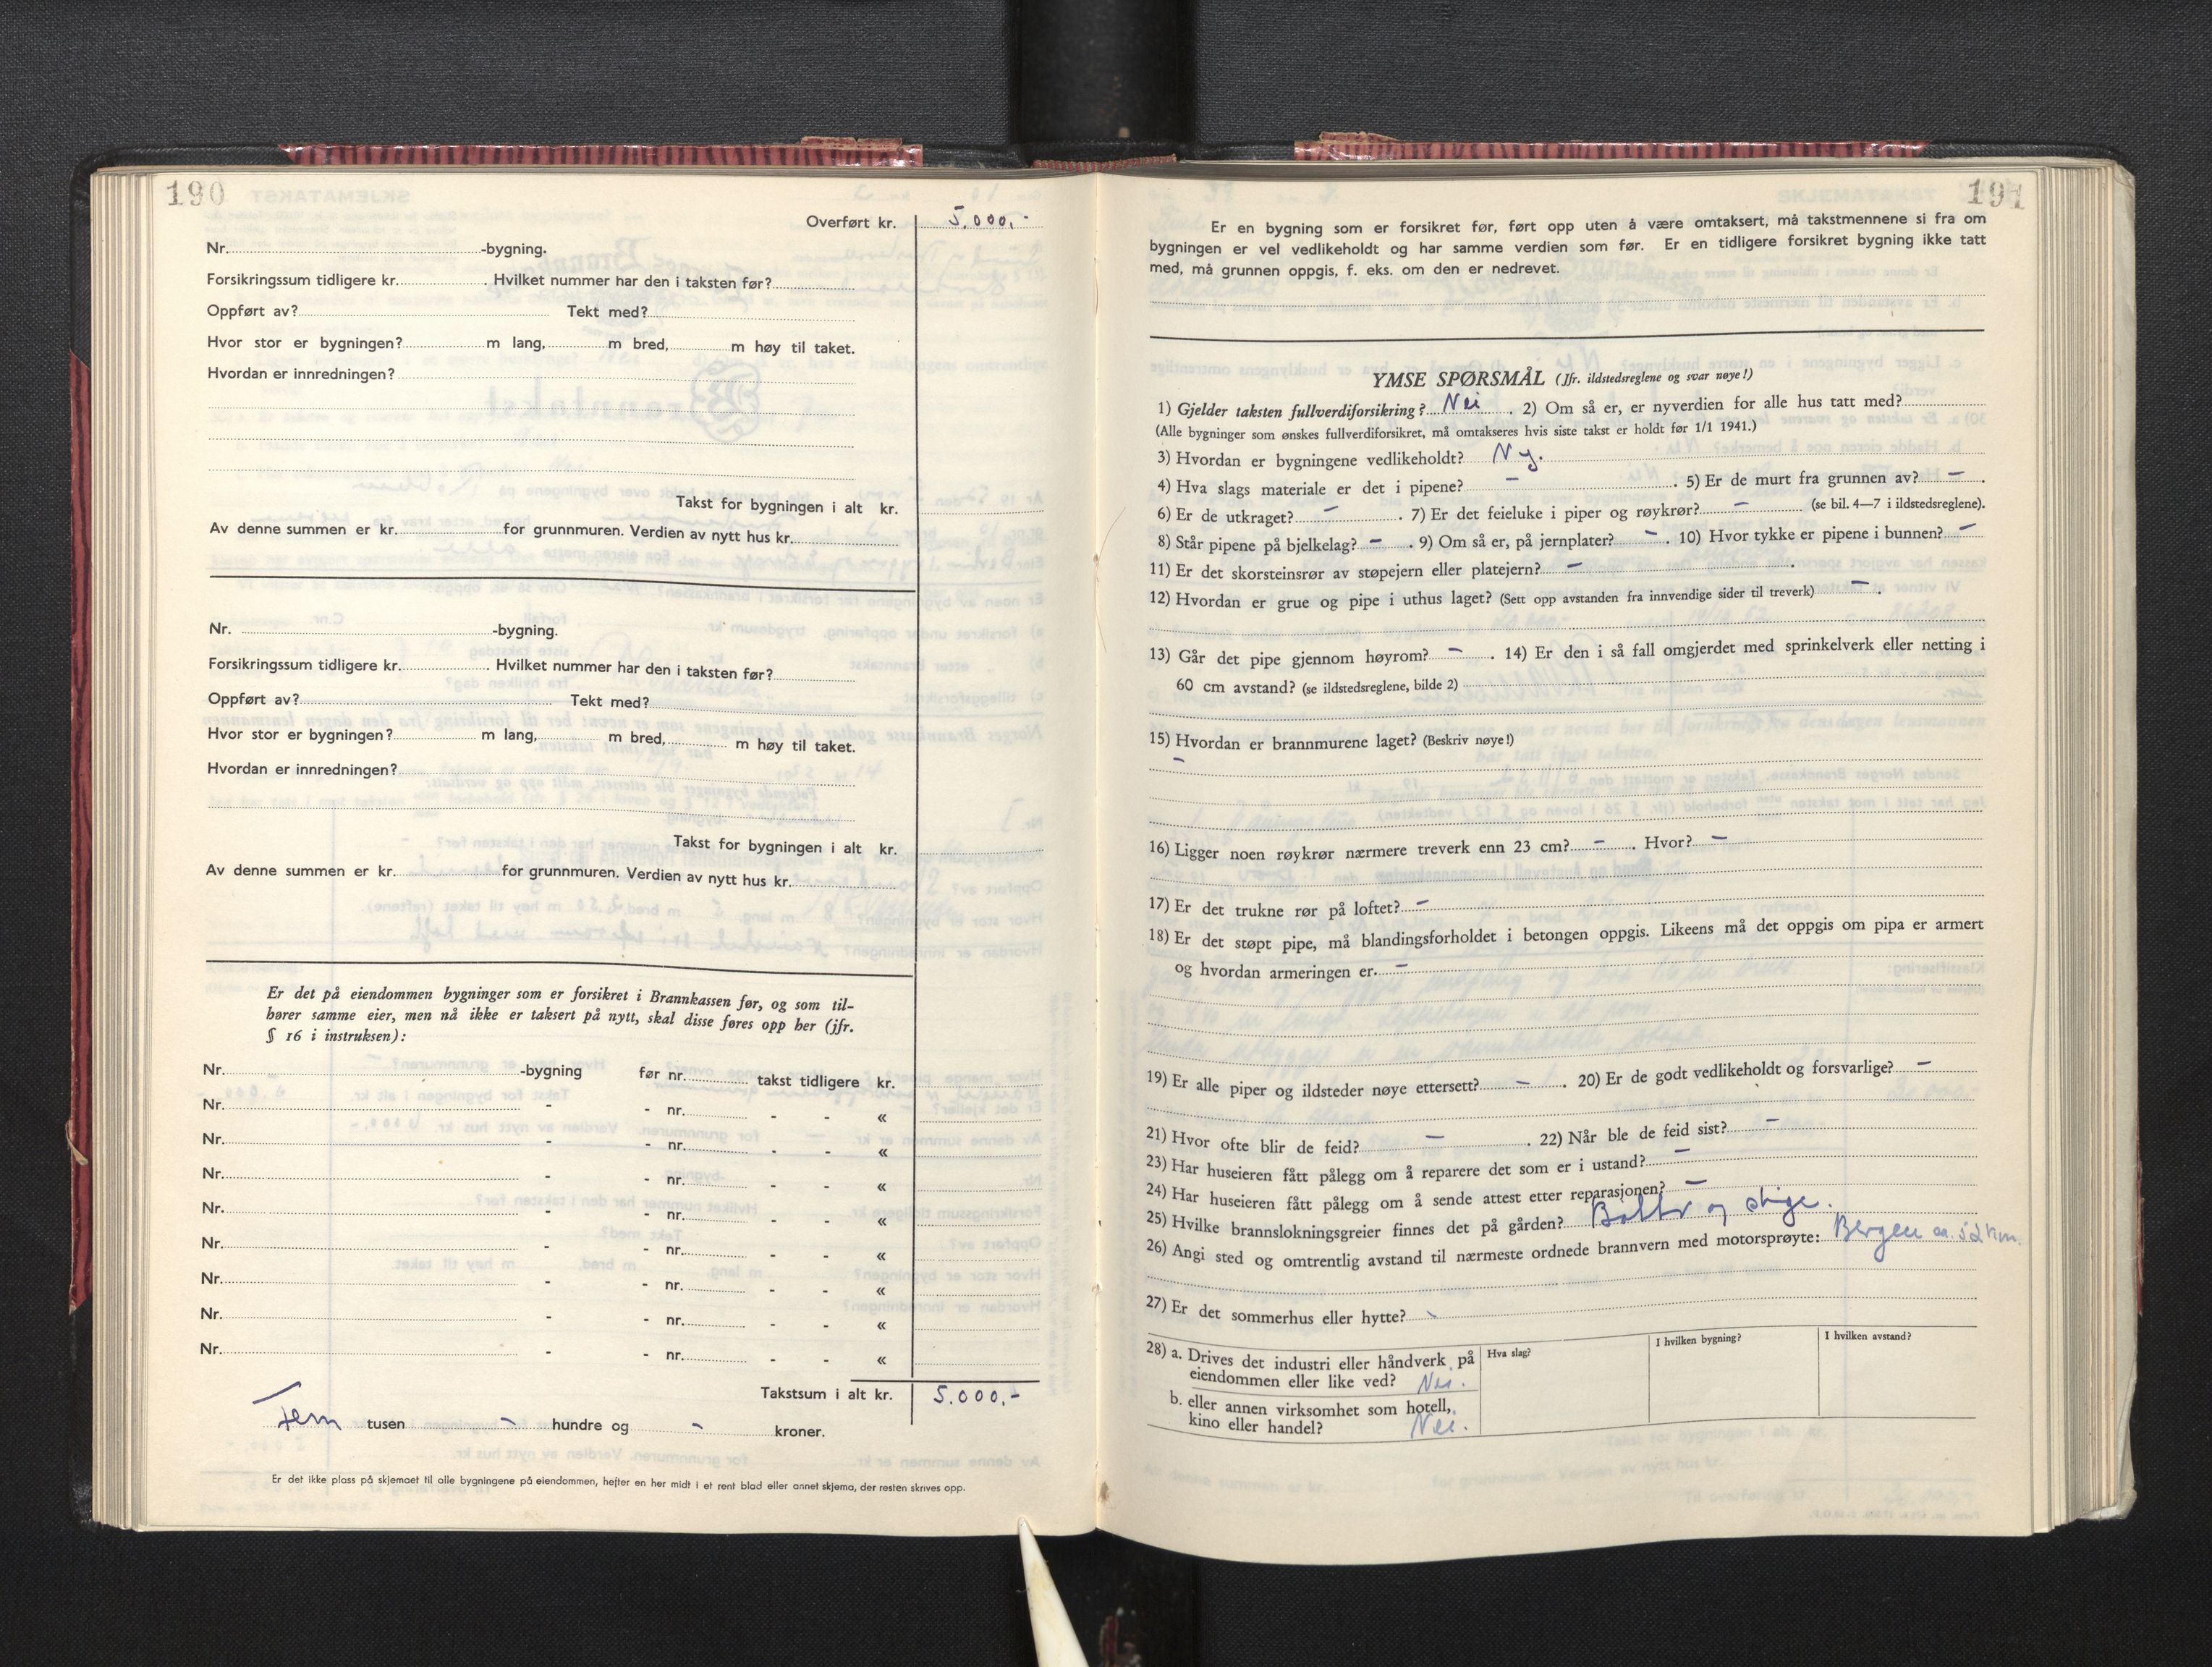 190
Overført kr. 5.000,-
Nr. -bygning.
Forsikringssum tidligere kr. . Hvilket nummer har den i taksten før?
Oppført av? Tekt med?
Hvor stor er bygningen? m lang, m bred, m høy til taket.
Hvordan er innredningen?
Takst for bygningen i alt kr.
Av denne summen er kr. for grunnmuren. Verdien av nytt hus kr.
Nr. -bygning.
Forsikringssum tidligere kr. . Hvilket nummer har den i taksten før?
Oppført av? Tekt med?
Hvor stor er bygningen? m lang, m bred, m høy til taket.
Hvordan er innredningen?
Takst for bygningen i alt kr.
Av denne summen er kr. for grunnmuren. Verdien av nytt hus kr.
Er det på eiendommen bygninger som er forsikret i Brannkassen før, og som til-
hører samme eier, men nå ikke er taksert på nytt, skal disse føres opp her (jfr.
§ 16 i instruksen):
Nr. -bygning før nr. takst tidligere kr.
Nr. - - nr. - - «
Nr. - - nr. - - «
Nr. - - nr. - - «
Nr. - - nr. - - «
Nr. - - nr. - - «
Nr. - - nr. - - «
Nr. - - nr. - - «
Nr. - - nr. - - «
Takstsum i alt kr. 5.000,-
Fem tusen - hundre og - kroner.
Er det ikke plass på skjemaet til alle bygningene på eiendommen, hefter en her midt i et rent blad eller annet skjema, der resten skrives opp.
191
Er en bygning som er forsikret før, ført opp uten å være omtaksert, må takstmennene si fra om
bygningen er vel vedlikeholdt og har samme verdien som før. Er en tidligere forsikret bygning ikke tatt
med, må grunnen oppgis, f. eks. om den er nedrevet.
YMSE SPØRSMÅL (Jfr. ildstedsreglene og svar nøye!)
1) Gjelder taksten fullverdiforsikring? Nei . 2) Om så er, er nyverdien for alle hus tatt med?
(Alle bygninger som ønskes fullverdiforsikret, må omtakseres hvis siste takst er holdt før 1/1 1941.)
3) Hvordan er bygningene vedlikeholdt? Ny.
4) Hva slags materiale er det i pipene? - . 5) Er de murt fra grunnen av? - .
6) Er de utkraget? - . 7) Er det feieluke i piper og røykrør? - (se bil. 4—7 i ildstedsreglene).
8) Står pipene på bjelkelag? - . 9) Om så er, på jernplater? - . 10) Hvor tykke er pipene i bunnen? -
11) Er det skorsteinsrør av støpejern eller platejern? - .
12) Hvordan er grue og pipe i uthus laget? (Sett opp avstanden fra innvendige sider til treverk) - .
13) Går det pipe gjennom høyrom? - . 14) Er den i så fall omgjerdet med sprinkelverk eller netting i
60 cm avstand? (se ildstedsreglene, bilde 2)
15) Hvordan er brannmurene laget? (Beskriv nøye!)
-
16) Ligger noen røykrør nærmere treverk enn 23 cm? - . Hvor? -
17) Er det trukne rør på loftet? -
18) Er det støpt pipe, må blandingsforholdet i betongen oppgis. Likeens må det oppgis om pipa er armert
og hvordan armeringen er. -
19) Er alle piper og ildsteder nøye ettersett? - . 20) Er de godt vedlikeholdt og forsvarlige? -
21) Hvor ofte blir de feid? - . 22) Når ble de feid sist? -
23) Har huseieren fått pålegg om å reparere det som er i ustand? -
24) Har huseieren fått pålegg om å sende attest etter reparasjonen? -
25) Hvilke brannslokningsgreier finnes det på gården? Bøtter og stige.
26) Angi sted og omtrentlig avstand til nærmeste ordnede brannvern med motorsprøyte: Bergen ca. 52 km.
27) Er det sommerhus eller hytte? -
28) a. Drives det industri eller håndverk på
eiendommen eller like ved? Nei.
b. eller annen virksomhet som hotell,
kino eller handel? Nei.
Hva slag?
I hvilken bygning?
I hvilken avstand?